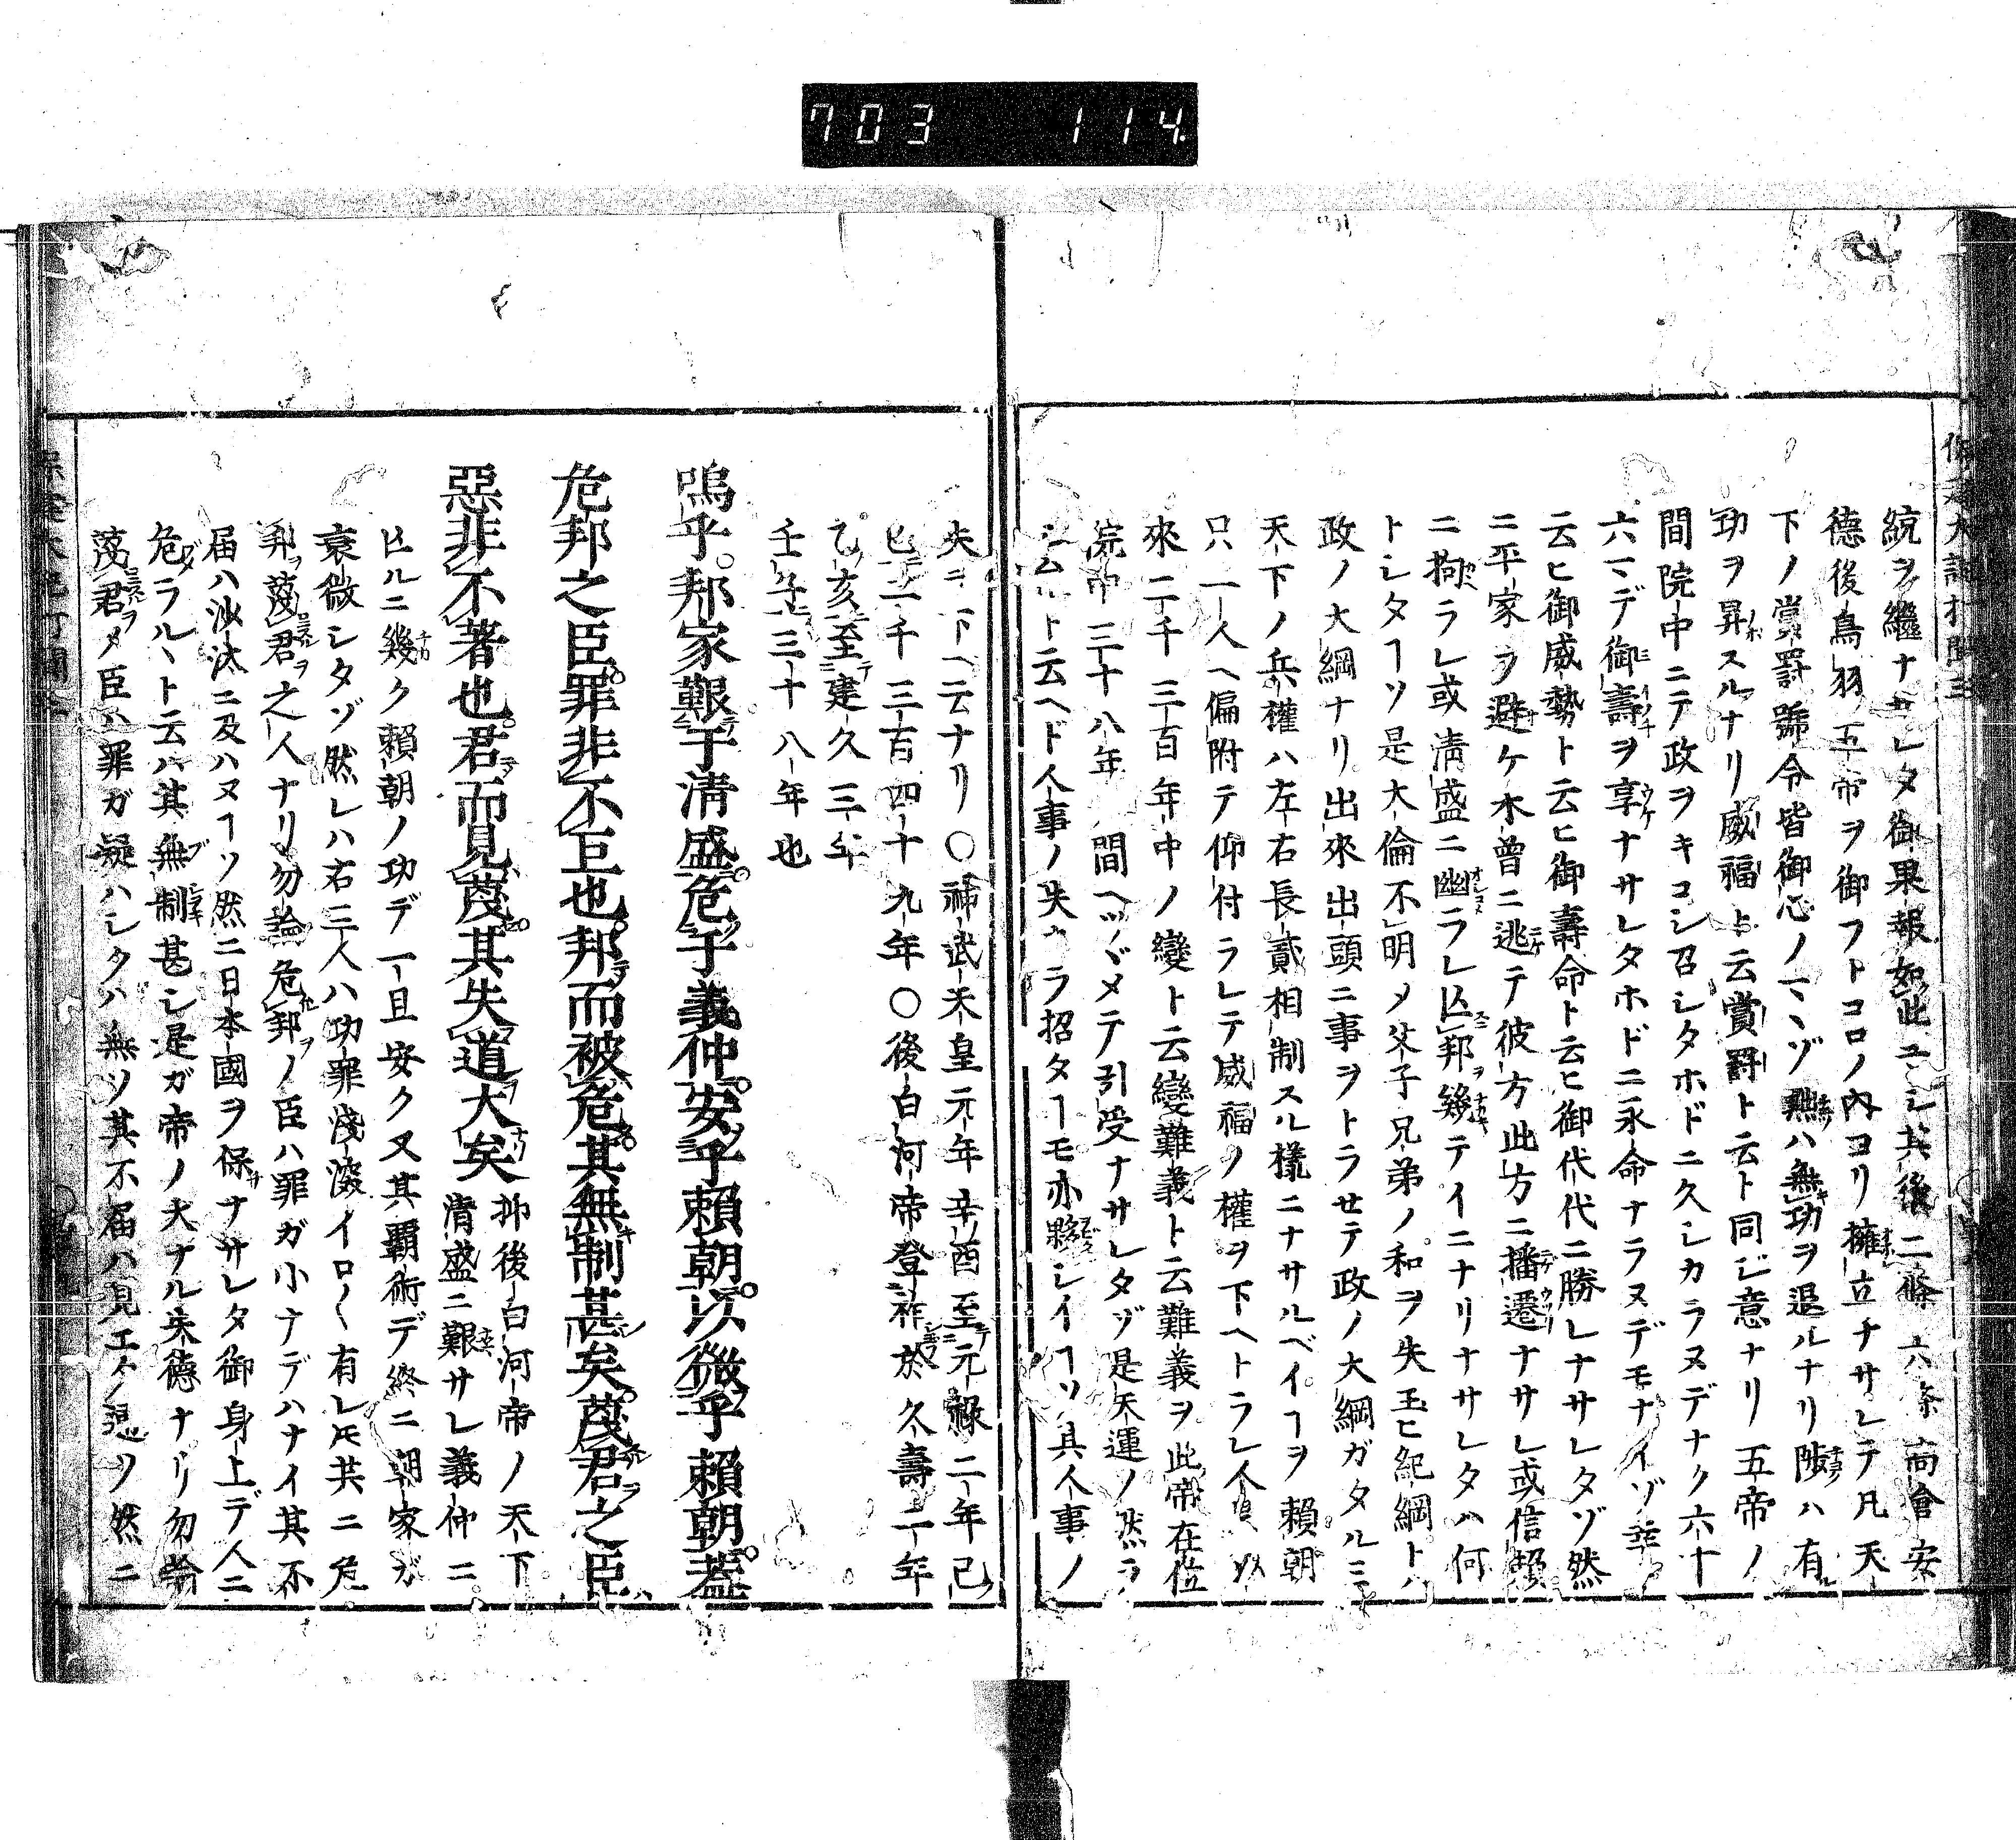 703 114
統ヲ繼ナサレタ御果報如此ユシ其後二條六条高倉安
德後鳥羽五帝ヲ御フトコロノ內ヨリ擁立ナサレテ凡天
下ノ賞罰號令皆御心ノマヽゾ黜ハ無功ヲ退ルナリ陟ハ有
功ヲ昇スルナリ威福ト云賞罸ト云ト同ジ意ナリ五帝ノ
間院中ニテ政ヲキコシ召シタホドニ久シカラヌデナク六十
六マデ御壽ヲ享ナサレタホドニ永命ナラヌデモナイゾ
云ヒ御威勢ト云ヒ御壽命ト云ヒ御代代ニ勝レナサレタゾ然
ニ平家ヲ避ケ木曽ニ逃テ彼方此方ニ播遷ナサレ或信頼
ニ拘ラレ或淸盛ニ幽ラレ亾邦ヲ幾テイニナリナサレタハ何
トシタヿソ是大倫不明メ父子兄弟ノ和ヲ失玉ヒ紀綱トハ
政ノ大綱ナリ出來出頭ニ事ヲトラせテ政ノ大綱ガタルミ
天下ノ兵權ハ左右長貳相制スル樣ニナサルベイヿヲ頼朝
只一人ヘ偏附テ仰付ラレテ威福ノ權ヲ下ヘトラレ人
來二千三百年中ノ變ト云變難義ト云難義ヲ此帝在位
院中三十八年間ヘツヾメテ引受ナサレタゾ是天運ノ然ラ
シムト云ヘド人事ノ失カラ招タヿモ亦夥シイヿソ其人事ノ
失ヲ下ヘ云ナリ〇神武天皇元年辛酉至元祿二年己
巳二千三百四十九年〇後白河帝登祚於久壽二年
乙亥至建久三年
壬子三十八年也
嗚乎邦家艱于淸盛危于義仲安乎賴朝以微乎賴朝蓋
危邦之臣罪非不巨也邦而被危其無制甚矣蔑君之臣
惡非不著也君而見蔑其失道大矣 抑後白河帝ノ天下
淸盛ニ艱サレ義仲ニ
亾ルニ幾ク賴朝ノ功デ一旦安ク又其覇術デ終ニ朝家ガ
衰微シタゾ然レハ右三人ハ功罪淺深イロ〱有レモ共ニ危
邦ヲ蔑君ヲ之人ナリ勿論危邦ヲノ臣ハ罪ガ小ナデハナイ其不
届ハ沙汰ニ及ハヌヿソ然ニ日本國ヲ保ナサレタ御身上デ人ニ
危ラルヽト云ハ其無制甚シ是ガ帝ノ大ナル失德ナリ勿論
蔑君ヲメ臣ハ罪ガ疑ハシクハ無ソ其不届ハ見エタソ然ニ